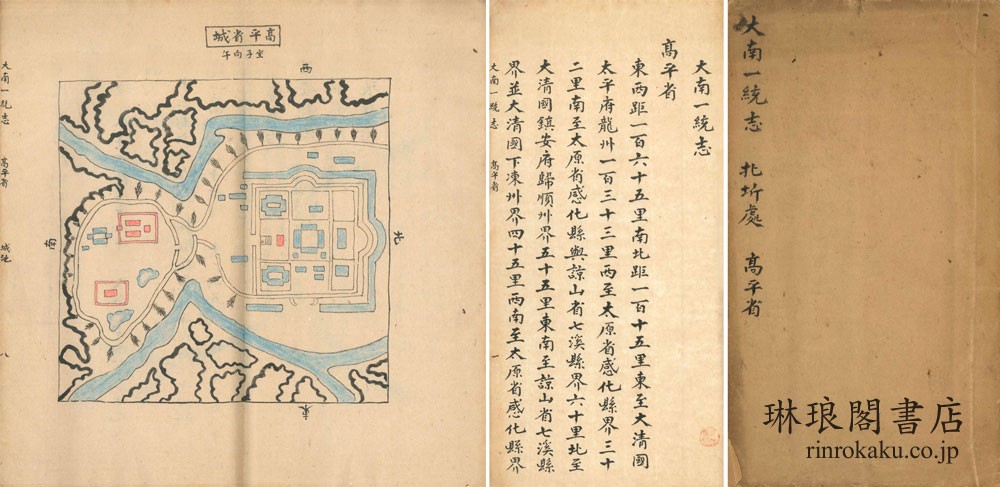 高平省城
坐子向午
西
南
北
東
大南一統志
高平省
城池
八
大南一統志
高平省
東西距一百六十五里南北距一百十五里東至大清國
太平府龍州一百三十三里西至太原省感化縣界三十
二里南至太原省感化縣與諒山省七溪縣界六十里北至
大清國鎮安府歸順州界五十五里東南至諒山省七溪縣
界並大清國下凍州界四十五里西南至太原省感化縣界
大南一統志
高平省
一
大南一統志
北圻處
高平省
琳琅閣書店
rinrokaku.co.jp